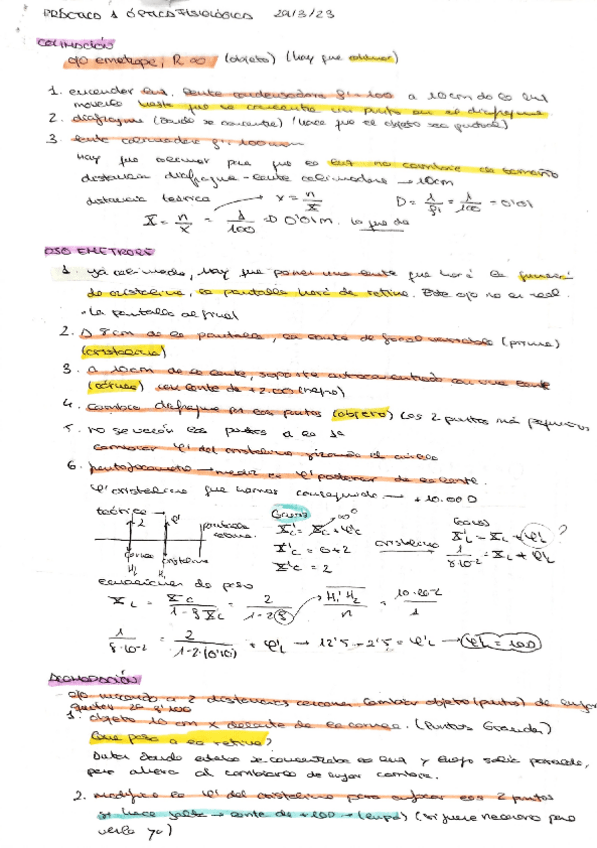 PRÁCTICA 1 ÓPTICA FISIOLÓGICA 29/3/23
COLIMACIÓN
ojo emetrope, R ∞ (objeto) (hay que colimar)
1. encender luz, lente condensadora φ'= 100 a 10cm de la luz
moverlo hasta que se concentre un punto en el diafragma
2. diafragma (donde se concentre) (hace que el objeto sea puntual)
3. lente colimadora φ': 100mm
Hay que colimar para que la luz no cambie de tamaño
distancia diafragma - lente colimadora → 10cm
distancia teórica x = n/X D = 1/φ' = 1/100 = 0'01
X = n/x = 1/100 = D 0'01m. lo que da
OJO EMETROPE
1. ya colimado, hay que poner una lente que hará la función
de cristalino, la pantalla hará de retina. Este ojo no es real.
• La pantalla al final
2. A 8cm de la pantalla, la lente de focal variable (prisma)
(cristalino)
3. a 10cm de la lente, soporte autocentrado con una lente
(córnea) con lente de +2.00 (negro)
4. Cambiar diafragma por los puntos (objeto) los 2 puntos más pequeños
5. no se verán los puntos a la 1ª
cambiar φ' del cristalino girando el círculo
6. frontofocómetro → medir la φ' posterior de la lente.
φ' cristalino que hemos conseguido → +10.00D
teórico → 2 φ'L pantalla
córnea cristalino
Gauss
X'c = Xc + φ'c
X'c = 0+2
X'c = 2
cristalino →
Gauss
X'L = XL + φ'L ?
1/8·10-2 = XL + φ'L
ecuaciones de paso
XL = X'c / 1-δX'c = 2 / 1-2δ → H1'H2 / n = 10·10-2 / 1
1/8·10-2 = 2/1-2·(0'10) = φ'L → 12'5 - 2'5 = φ'L → φ'L = 10D
ACOMODACIÓN
ojo mirando a 2 distancias cercanas. Cambiar objeto (punto) de lugar
1. objeto 10 cm x delante de la córnea. (Puntos Grandes)
¿Qué pasa a la retina?
Antes donde estaba se concentraba la luz y luego salía paralelo,
pero ahora al cambiarlo de lugar cambia.
2. modifico la φ' del cristalino para enfocar los 2 puntos
si hace falta → lente de +1.00 → (lupa) (si fuese necesario para
verlo ya)